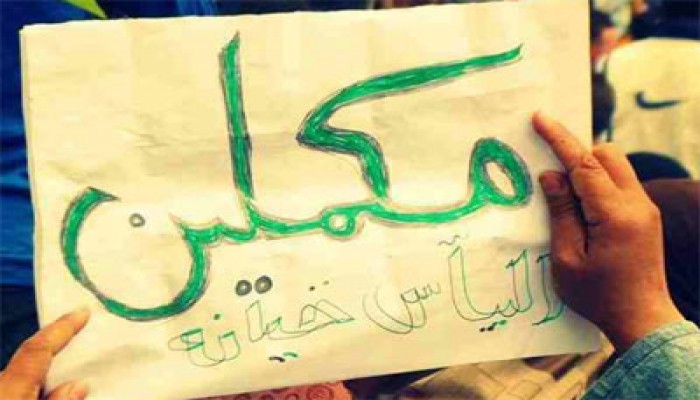 مكملين
اليأس خيانه